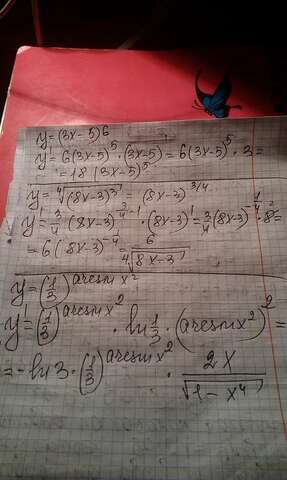 y=(3x-5)6
y=6(3x-5)⁵·(3x-5)=6(3x-5)⁵·3=
=18(3x-5)⁵
y=⁴√(8x-3)³=(8x-3)^3/4
y=3/4(8x-3)^(3/4-1)·(8x-3)'=3/4(8x-3)^(-1/4)·8²=
=6(8x-3)^(-1/4)=6/⁴√(8x-3)
y=(1/3)^arcsin x²
y'=(1/3)^arcsin x²·ln 1/3·(arcsin x²)²=
=-ln 3·(1/3)^arcsin x²·2x/√(1-x⁴)